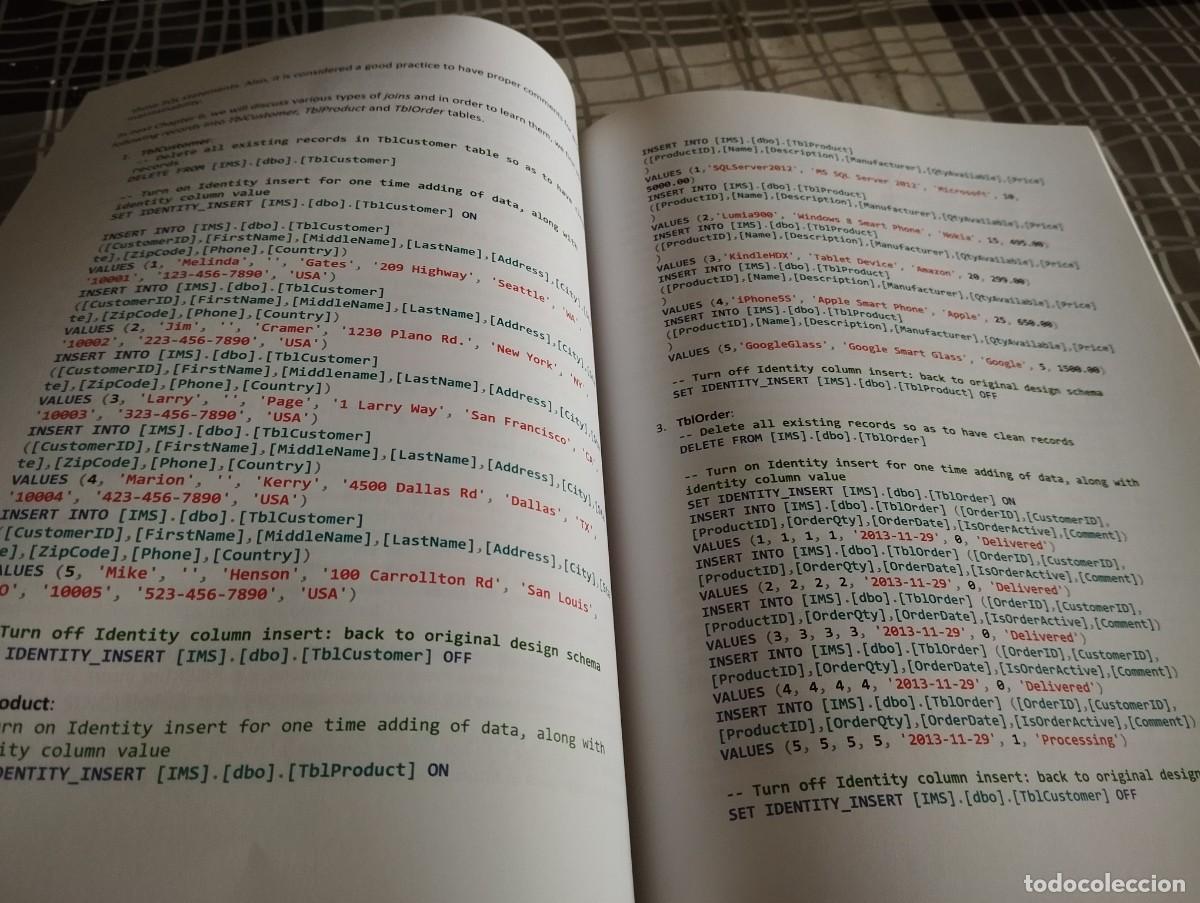 these SQL statements. Also, it is considered a good practice to have proper comments for
maintainability.
In next Chapter 6, we will discuss various types of joins and in order to learn them, we
following records into TblCustomer, TblProduct and TblOrder tables.
1. TblCustomer:
-- Delete all existing records in TblCustomer table so as to have
records
DELETE FROM [IMS].[dbo].[TblCustomer]
-- Turn on Identity insert for one time adding of data, along with
identity column value
SET IDENTITY_INSERT [IMS].[dbo].[TblCustomer] ON
INSERT INTO [IMS].[dbo].[TblCustomer]
([CustomerID],[FirstName],[MiddleName],[LastName],[Address],[City],
te],[ZipCode],[Phone],[Country])
VALUES (1, 'Melinda', '', 'Gates', '209 Highway', 'Seattle', 'WA',
'10001', '123-456-7890', 'USA')
INSERT INTO [IMS].[dbo].[TblCustomer]
([CustomerID],[FirstName],[MiddleName],[LastName],[Address],[City],
te],[ZipCode],[Phone],[Country])
VALUES (2, 'Jim', '', 'Cramer', '1230 Plano Rd.', 'New York', 'NY'
'10002', '223-456-7890', 'USA')
INSERT INTO [IMS].[dbo].[TblCustomer]
([CustomerID],[FirstName],[Middlename],[LastName],[Address],[City],[Sta
te],[ZipCode],[Phone],[Country])
VALUES (3, 'Larry', '', 'Page', '1 Larry Way', 'San Francisco', 'CA'
'10003', '323-456-7890', 'USA')
INSERT INTO [IMS].[dbo].[TblCustomer]
([CustomerID],[FirstName],[MiddleName],[LastName],[Address],[City],[Sta
te],[ZipCode],[Phone],[Country])
VALUES (4, 'Marion', '', 'Kerry', '4500 Dallas Rd', 'Dallas', 'TX',
'10004', '423-456-7890', 'USA')
INSERT INTO [IMS].[dbo].[TblCustomer]
[CustomerID],[FirstName],[MiddleName],[LastName],[Address],[City],[Sta
e],[ZipCode],[Phone],[Country])
ALUES (5, 'Mike', '', 'Henson', '100 Carrollton Rd', 'San Louis',
O', '10005', '523-456-7890', 'USA')
Turn off Identity column insert: back to original design schema
IDENTITY_INSERT [IMS].[dbo].[TblCustomer] OFF
oduct:
rn on Identity insert for one time adding of data, along with
ity column value
DENTITY_INSERT [IMS].[dbo].[TblProduct] ON
INSERT INTO [IMS].[dbo].[TblProduct]
([ProductID],[Name],[Description],[Manufacturer],[QtyAvailable],[Price]
)
VALUES (1,'SQLServer2012', 'MS SQL Server 2012', 'Microsoft', 10,
5000.00)
INSERT INTO [IMS].[dbo].[TblProduct]
([ProductID],[Name],[Description],[Manufacturer],[QtyAvailable],[Price]
)
VALUES (2,'Lumia900', 'Windows 8 Smart Phone', 'Nokia', 15, 695.00)
INSERT INTO [IMS].[dbo].[TblProduct]
([ProductID],[Name],[Description],[Manufacturer],[QtyAvailable],[Price]
)
VALUES (3,'KindleHDX', 'Tablet Device', 'Amazon', 20, 299.00)
INSERT INTO [IMS].[dbo].[TblProduct]
([ProductID],[Name],[Description],[Manufacturer],[QtyAvailable],[Price]
)
VALUES (4,'iPhone5S', 'Apple Smart Phone', 'Apple', 25, 650.00)
INSERT INTO [IMS].[dbo].[TblProduct]
([ProductID],[Name],[Description],[Manufacturer],[QtyAvailable],[Price]
)
VALUES (5,'GoogleGlass', 'Google Smart Glass', 'Google', 5, 1500.00)
-- Turn off Identity column insert: back to original design schema
SET IDENTITY_INSERT [IMS].[dbo].[TblProduct] OFF
3. TblOrder:
-- Delete all existing records so as to have clean records
DELETE FROM [IMS].[dbo].[TblOrder]
-- Turn on Identity insert for one time adding of data, along with
identity column value
SET IDENTITY_INSERT [IMS].[dbo].[TblOrder] ON
INSERT INTO [IMS].[dbo].[TblOrder] ([OrderID],[CustomerID],
[ProductID],[OrderQty],[OrderDate],[IsOrderActive],[Comment])
VALUES (1, 1, 1, 1, '2013-11-29', 0, 'Delivered')
INSERT INTO [IMS].[dbo].[TblOrder] ([OrderID],[CustomerID],
[ProductID],[OrderQty],[OrderDate],[IsOrderActive],[Comment])
VALUES (2, 2, 2, 2, '2013-11-29', 0, 'Delivered')
INSERT INTO [IMS].[dbo].[TblOrder] ([OrderID],[CustomerID],
[ProductID],[OrderQty],[OrderDate],[IsOrderActive],[Comment])
VALUES (3, 3, 3, 3, '2013-11-29', 0, 'Delivered')
INSERT INTO [IMS].[dbo].[TblOrder] ([OrderID],[CustomerID],
[ProductID],[OrderQty],[OrderDate],[IsOrderActive],[Comment])
VALUES (4, 4, 4, 4, '2013-11-29', 0, 'Delivered')
INSERT INTO [IMS].[dbo].[TblOrder] ([OrderID],[CustomerID],
[ProductID],[OrderQty],[OrderDate],[IsOrderActive],[Comment])
VALUES (5, 5, 5, 5, '2013-11-29', 1, 'Processing')
-- Turn off Identity column insert: back to original design
SET IDENTITY_INSERT [IMS].[dbo].[TblCustomer] OFF
todocoleccion